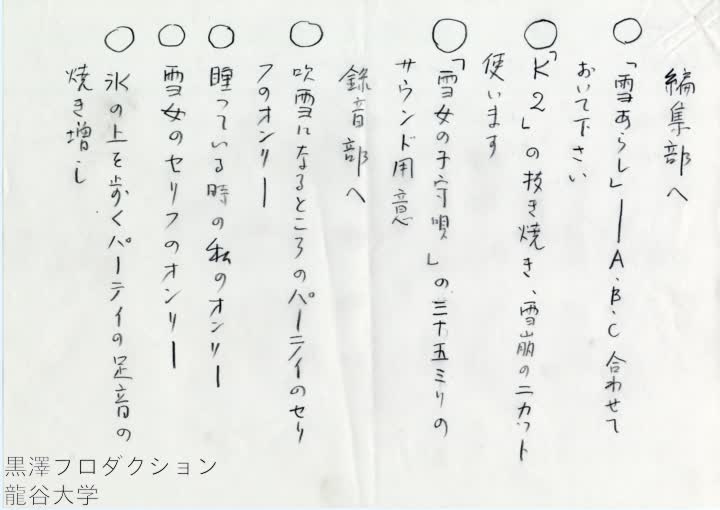 編集部へ
○「雪あらし」―A.B.C合わせて
おいて下さい
○「K2」の抜き焼き、雪崩の二カット
使います
○「雪女の子守唄」の三十五ミリの
サウンド用意
録音部へ
○吹雪になるところのパーティのセリ
フのオンリー
○瞳っている時の私のオンリー
○雪女のセリフのオンリー
○氷の上を歩くパーティの足音の
焼き増し
黒澤プロダクション
龍谷大学